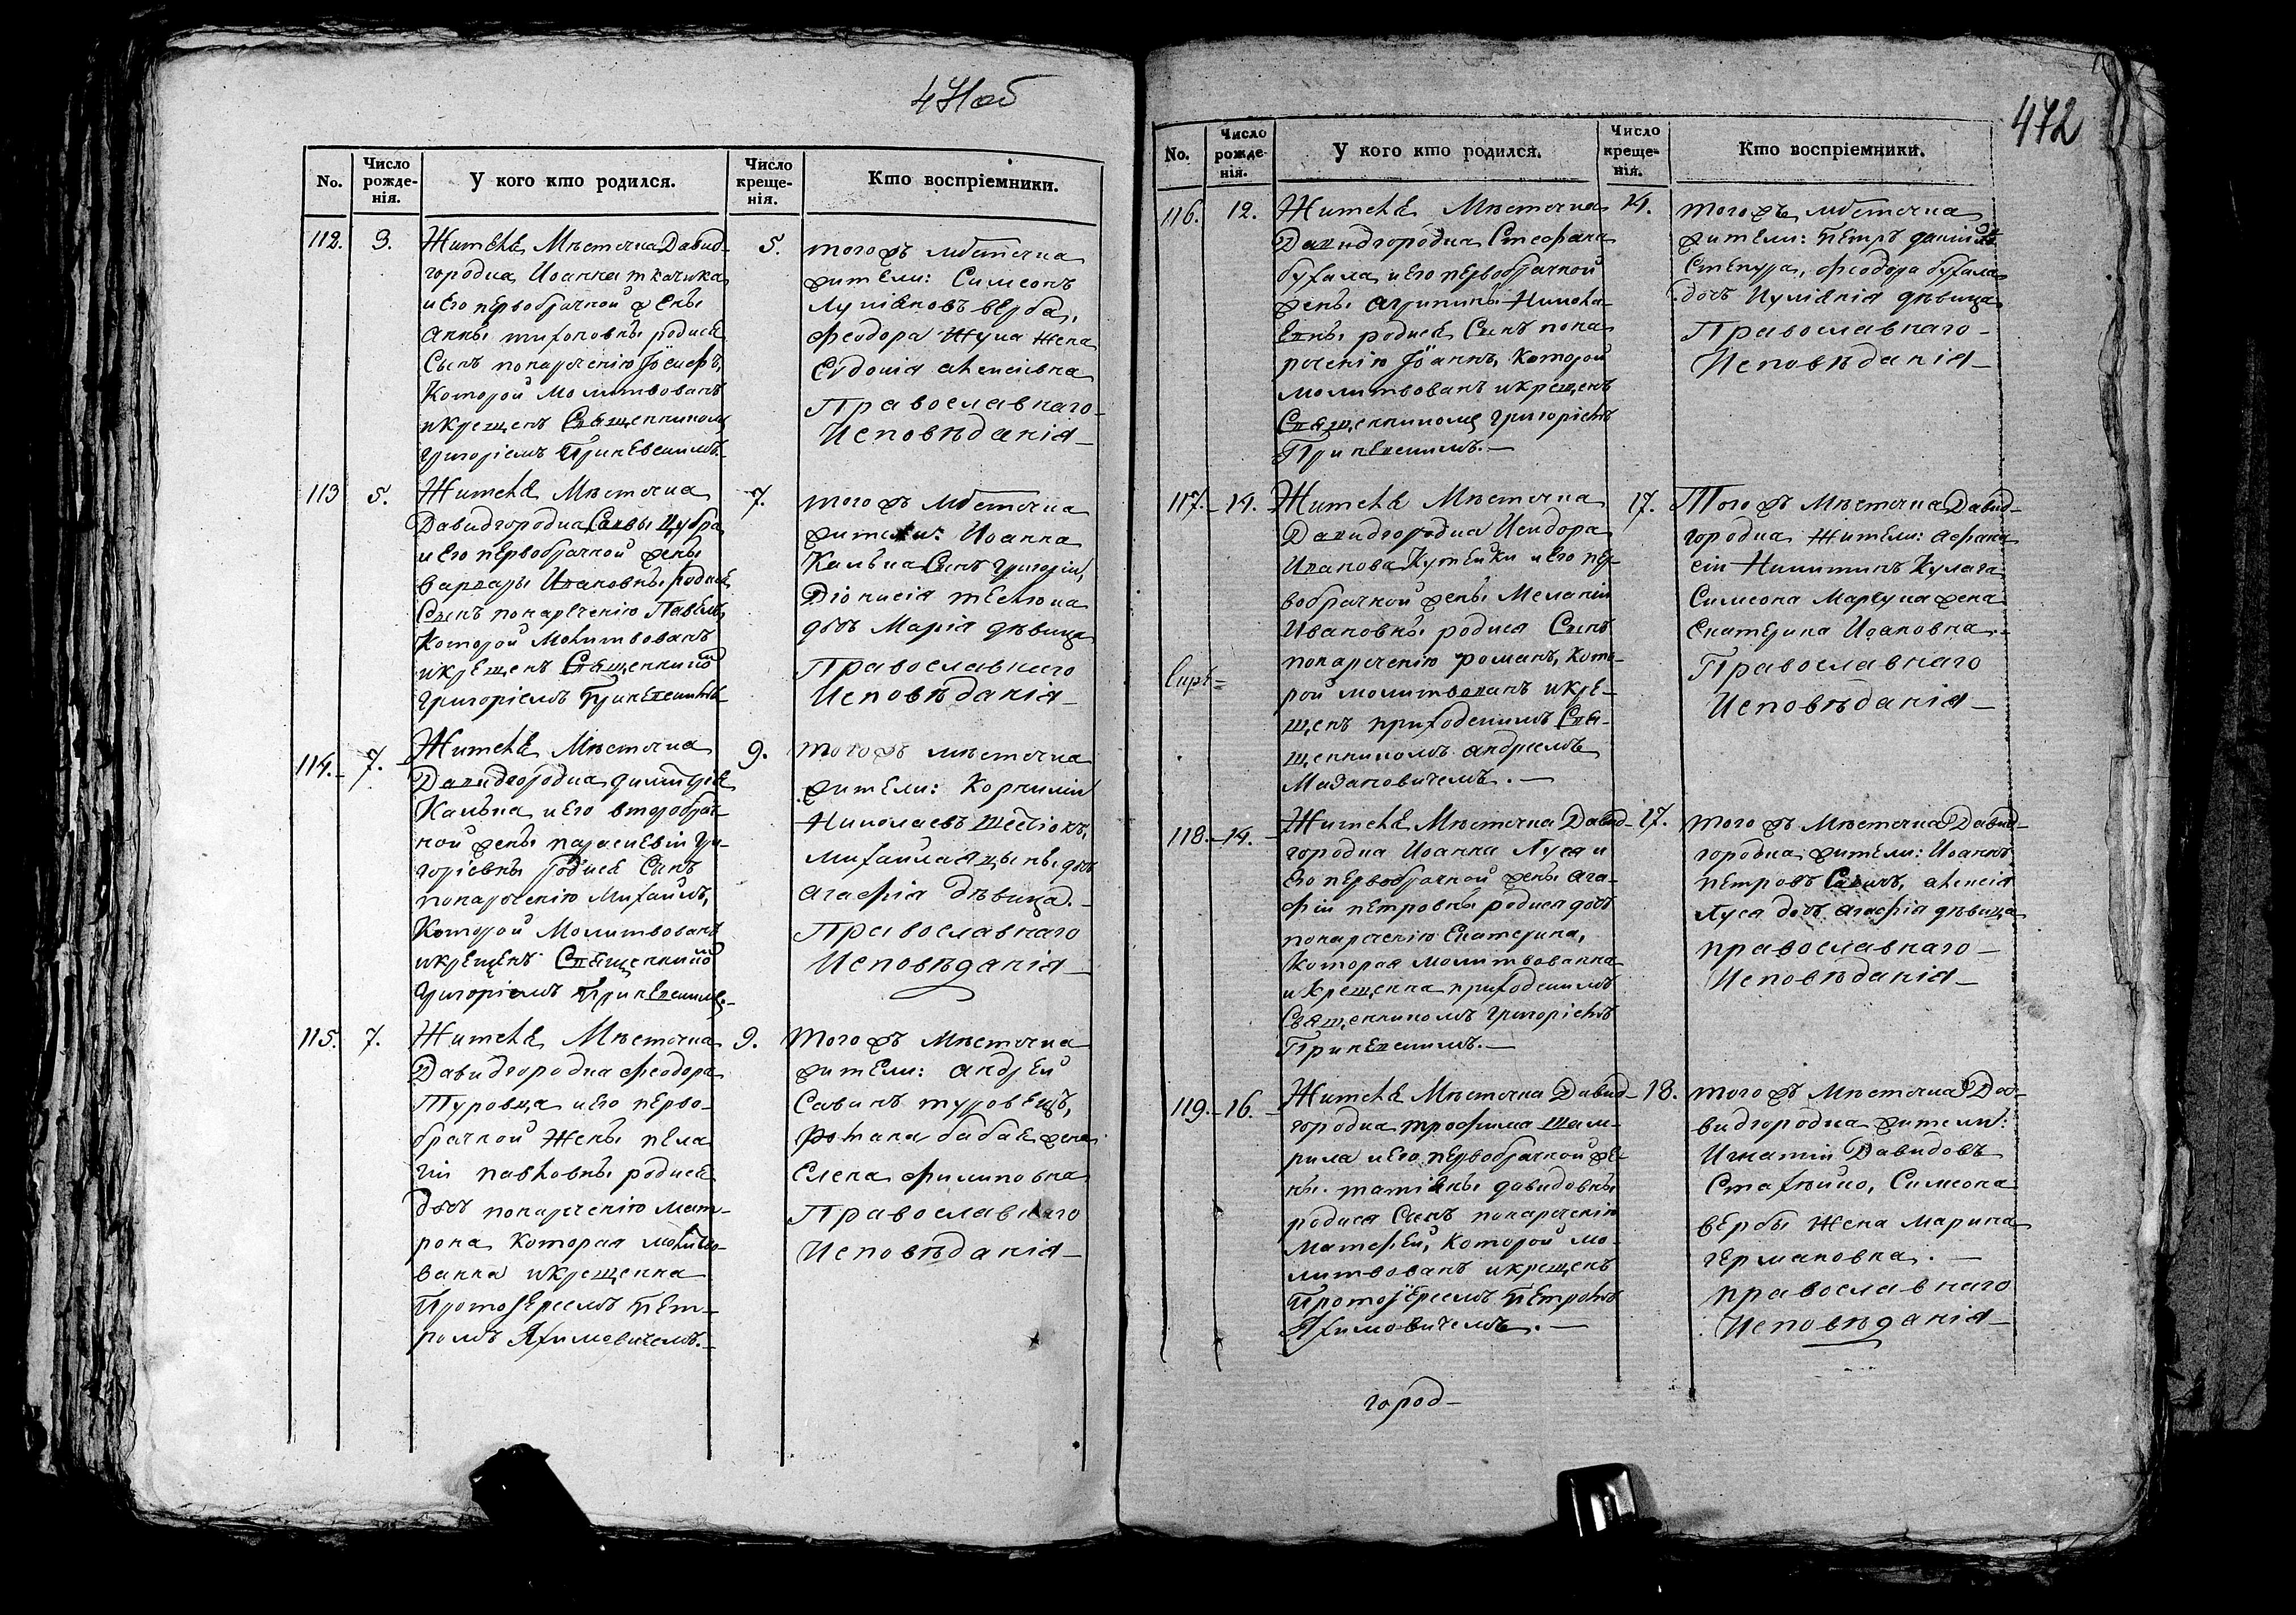 471об
No.
Число рожде-нія.
У кого кто родился.
Число креще-нія.
Кто воспріемники.
112.
3.
Жителя Мѣстечка Давид-
городка Иоанна ткачика
и его первобрачной жены
Анны тихоновны родися
Сынъ понаречению Іосифъ,
Которой Молитвованъ
и крещенъ Священникомъ
григоріемъ Прилевскимъ.
5.
тогожъ мѣстечка
жители: Симеонъ
Лукіяновъ верба,
феодора Жука Жена
Евдокія алексіевна
Православнаго
Исповѣданія
113
5.
Жителя Мѣстечка
Давидгородка Саввы Цубра
и его первобрачной жены
Варвары Ивановны родися
Сынъ понаречению Павелъ,
Которой Молитвованъ
и крещенъ Священникомъ
григоріемъ Прилевскимъ
7.
тогожъ мѣстечка
жители: Иоанна
Калька Сынъ григорій,
Діонисія
дочь Марія дѣвица
Православнаго
Исповѣданія
114.
7.
Жителя Мѣстечка
Давидгородка димитрія
Калька и его второбрач-
ной жены параскевіи гри-
горіевны родися Сынъ
понаречению Михаилъ,
Которой Молитвованъ
и крещенъ Священникомъ
григоріемъ Прилевскимъ.
9.
тогожъ мѣстечка
жители: Корнилій
Николаевъ Шевіокъ,
Михаила дочь
агафія дѣвица.
Православнаго
Исповѣданія
115.
7.
Жителя Мѣстечка
Давидгородка феодора
Туровца и его перво-
брачной Жены пела
гіи павловны родися
дочь понаречению мат-
рона Которая молитво-
ванна и крещенна
Протоіереемъ Пет-
ромъ Яхимовичемъ.
9.
Тогожъ Мѣстечка
жители: андрей
Савинъ туровецъ,
романа бабая жена
Елена филиповна
Православнаго
Исповѣданія
472
No.
Число рожде-нія.
У кого кто родился.
Число креще-нія.
Кто воспріемники.
116.
12.
Жителя Мѣстечка
Давидгородка Стефана
бухала и его первобрачной
жены агрипины Никола-
евны родися Сынъ пона
речению Іоаннъ, Которой
молитвованъ и крещенъ
Священникомъ григоріемъ
Прилевскимъ.
14.
тогожъ мѣстечка
жители: Петръ
Стекура, феодора бухала
дочь Иуліянія дѣвица
Православнаго
Исповѣданія
117.
14.
Жителя Мѣстечка
Давидгородка Исидора
Иванова Кутейки и его пер-
вобрачной жены Меланіи
Ивановны родися Сынъ
понаречению романъ, Кото-
рой молитвованъ и кре-
щенъ приходскимъ Свя-
щенникомъ андреемъ
Мазановичемъ.
17.
Тогожъ Мѣстечка Давид-
городка Жители: афана
сій Никитинъ Кулага
Симеона Марвука жена
Екатерина Иоановна.
Православнаго
Исповѣданія
118.
14.
Жителя Мѣстечка Давид-
городка Иоанна Луся и
его первобрачной жены ага-
фіи петровны родися дочь
понаречению Екатерина,
Которая молитвованна
и крещенна приходскимъ
Священникомъ григоріемъ
Прилевскимъ.
17.
тогожъ Мѣстечка Давид-
городка жители: Иоаннъ
петровъ Савичъ, алексія
Луся дочь агафія дѣвица
православнаго
Исповѣданія
119.
16.
Жителя Мѣстечка Давид-
городка трофима Шам-
рила и его первобрачной же-
ны татіяны давидовны
родися Сынъ понаречению
Матфей, Которой мо-
литвованъ и крещенъ
Протоіереемъ Петромъ
Яхимовичемъ.
18.
тогожъ Мѣстечка Да-
видгородка жители:
Игнатій Давидовъ
Стахейко, Симеона
вербы Жена Марина
германовна.
православнаго
Исповѣданія
город-